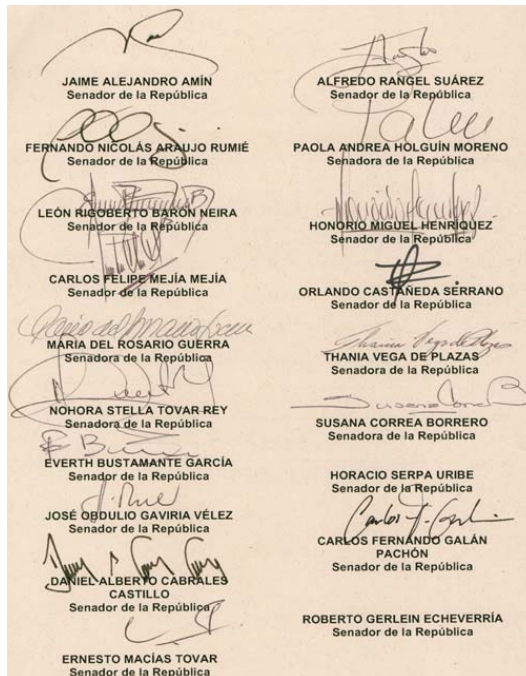 JAIME ALEJANDRO AMÍN
Senador de la República
FERNANDO NICOLÁS ARAUJO RUMIÉ
Senador de la República
LEÓN RIGOBERTO BARÓN NEIRA
Senador de la República
CARLOS FELIPE MEJÍA MEJÍA
Senador de la República
MARÍA DEL ROSARIO GUERRA
Senadora de la República
NOHORA STELLA TOVAR REY
Senadora de la República
EVERTH BUSTAMANTE GARCÍA
Senador de la República
JOSÉ OBDULIO GAVIRIA VÉLEZ
Senador de la República
DANIEL ALBERTO CABRALES
CASTILLO
Senador de la República
ERNESTO MACÍAS TOVAR
Senador de la República
ALFREDO RANGEL SUÁREZ
Senador de la República
PAOLA ANDREA HOLGUÍN MORENO
Senadora de la República
HONORIO MIGUEL HENRÍQUEZ
Senador de la República
ORLANDO CASTAÑEDA SERRANO
Senador de la República
Thania Vega de Plazas
THANIA VEGA DE PLAZAS
Senadora de la República
Susana Correa B
SUSANA CORREA BORRERO
Senadora de la República
HORACIO SERPA URIBE
Senador de la República
CARLOS FERNANDO GALÁN
PACHÓN
Senador de la República
ROBERTO GERLEIN ECHEVERRÍA
Senador de la República